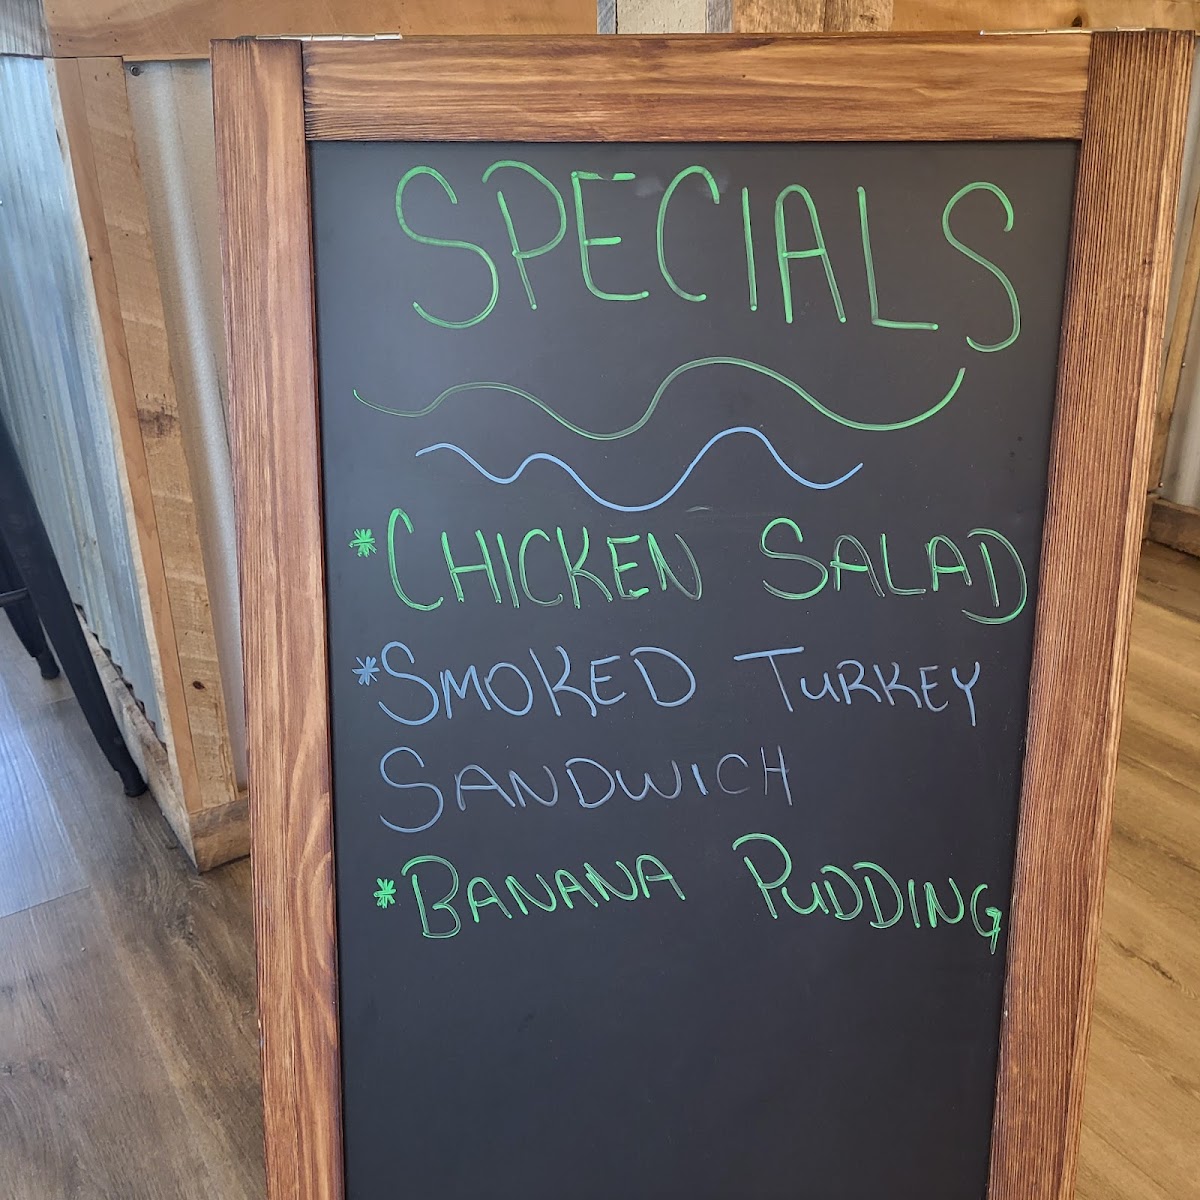 SPECIALS
*CHICKEN SALAD
*SMOKED TURKEY
SANDWICH
*BANANA PUDDING